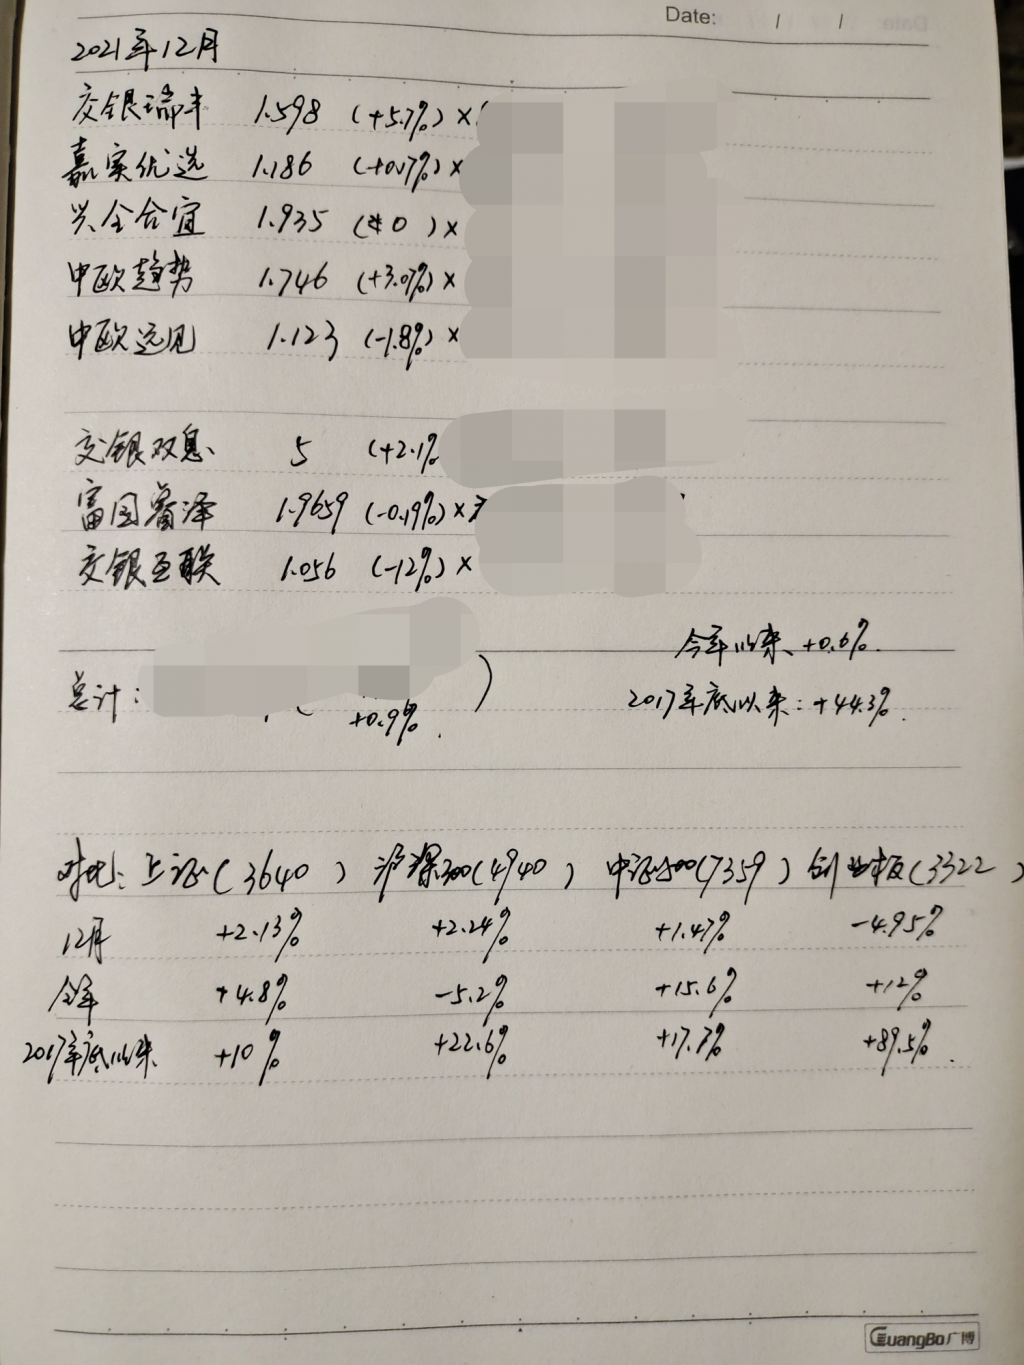 Date: / /
2021年12月
交银瑞丰 1.598 (+5.7%) ×
嘉实优选 1.186 (+0.17%) ×
兴全合宜 1.935 (0) ×
中欧趋势 1.746 (+3.07%) ×
中欧远见 1.123 (-1.8%) ×
交银双息 5 (+2.1%
富国睿泽 1.9659 (-0.19%) ×
交银互联 1.056 (-12%) ×
今年以来 +0.6%.
总计: ( +0.9%. )
2017年底以来: +44.3%.
对比: 上证(3640) 沪深300(4940) 中证500(7359) 创业板(3322)
12月 +2.13% +2.24% +1.47% -4.95%
全年 +4.8% -5.2% +15.6% +12%
2017年底以来 +10% +22.6% +17.7% +89.5%.
GuangBo广博